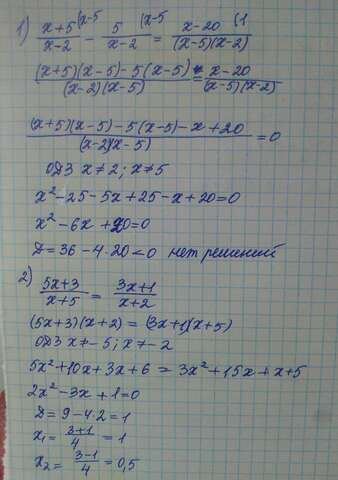 1) (x+5)/(x-2) (x-5 - 5/(x-2) (x-5 = (x-20)/((x-5)(x-2)) (1
((x+5)(x-5)-5(x-5))/((x-2)(x-5)) = (x-20)/((x-5)(x-2))
((x+5)(x-5)-5(x-5)-x+20)/((x-2)(x-5)) = 0
ОДЗ x≠2; x≠5
x²-25-5x+25-x+20=0
x²-6x+20=0
D=36-4·20<0 нет решений
2) (5x+3)/(x+5) = (3x+1)/(x+2)
(5x+3)(x+2)=(3x+1)(x+5)
ОДЗ x≠-5; x≠-2
5x²+10x+3x+6=3x²+15x+x+5
2x²-3x+1=0
D=9-4·2=1
x₁=(3+1)/4=1
x₂=(3-1)/4=0,5